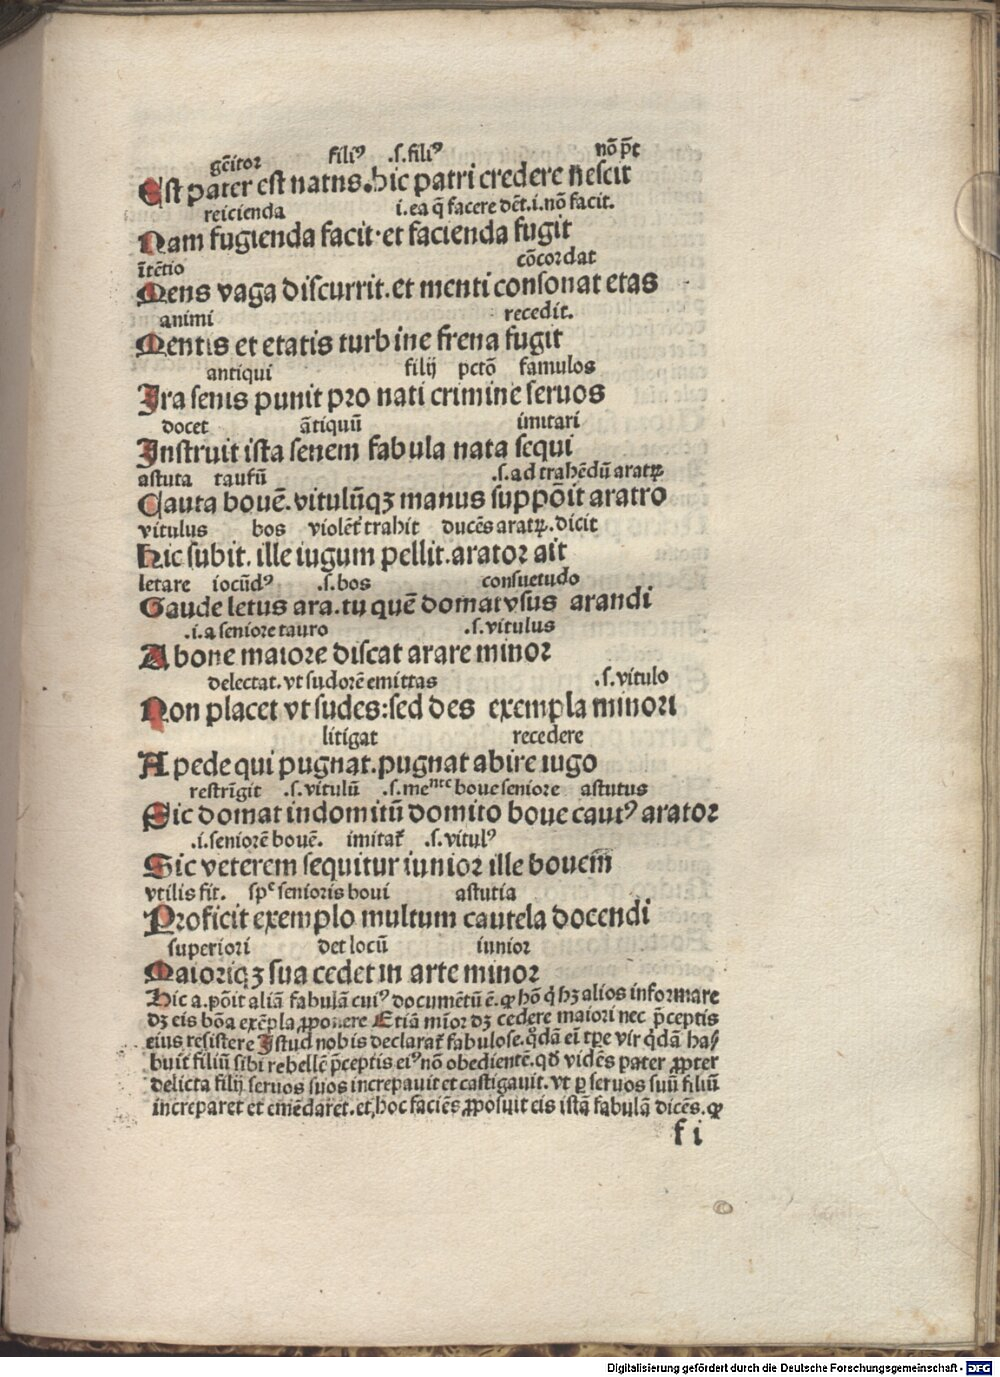 gēitor filiꝰ .s.filiꝰ nō pt̄
Est pater est natus.hic patri credere nescit
reicienda i.ea q̄ facere dēt.i.nō facit.
Nam fugienda facit·et facienda fugit
ītētio cōcordat
Mens vaga discurrit.et menti consonat etas
animi recedit.
Mentis et etatis turbine frena fugit
antiqui filij pctō famulos
Ira senis punit pro nati crimine seruos
docet ātiquū imitari
Instruit ista senem fabula nata sequi
astuta taurū .s.ad trahēdū aratꝝ
Cauta bouē.vitulūqꝫ manus suppōit aratro
vitulus bos violēt̄ trahit ducēs aratꝝ.dicit
Hic subit. ille iugum pellit.arator ait
letare iocūdꝰ .s.bos consuetudo
Gaude letus ara.tu quē domat vsus arandi
.i.a seniore tauro .s.vitulus
A boue maiore discat arare minor
delectat.vt sudorē emittas .s.vitulo
Non placet vt sudes:sed des exempla minori
litigat recedere
A pede qui pugnat.pugnat abire iugo
restrīgit .s.vitulū .s.meⁿᵗᵉ boue seniore astutus
Sic domat indomitū domito boue cautꝰ arator
.i.seniorē bouē. imitat̄ .s.vitulꝰ
Sic veterem sequitur iunior ille bouem
vtilis fit. spᵉ senioris boui astutia
Proficit exemplo multum cautela docendi
superiori det locū iunior
Maioriqꝫ sua cedet in arte minor
Hic a.pōit aliā fabulā cuiꝰ documētū ē.ꝙ hō q̇ hꝫ alios informare
dꝫ eis bōa exēpla ꝓponere Etiā mīor dꝫ cedere maiori nec p̄ceptis
eius resistere Istud nobis declarat̄ fabulose.q̇dā eī tꝑe vir q̇dā ha/
buit filiū sibi rebellē p̄ceptis eiꝰ nō obedientē.qđ vidēs pater ꝓpter
delicta filij seruos suos increpauit et castigauit.vt ꝑ seruos suū filiū
increparet et emēdaret.et hoc faciēs ꝓposuit eis istā fabulā dicēs.ꝙ
f i
Digitalisierung gefördert durch die Deutsche Forschungsgemeinschaft - DFG